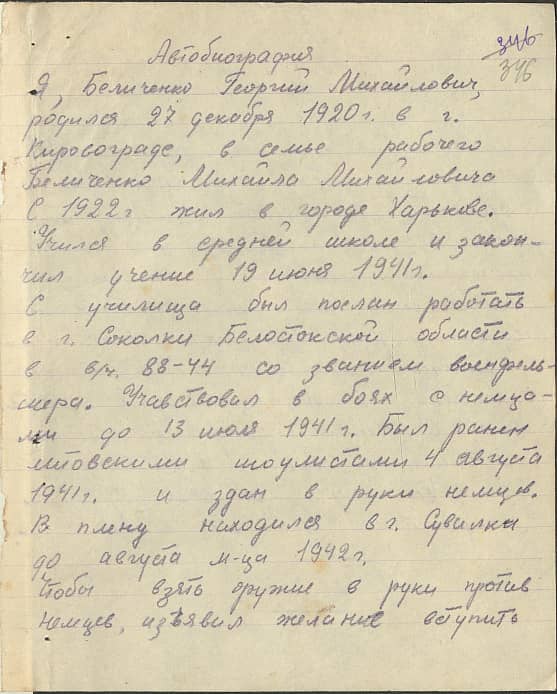 346
346
Автобиография
Я, Беличенко Георгий Михайлович,
родился 27 декабря 1920 г. в г.
Кировограде, в семье рабочего
Беличенко Михаила Михайловича
С 1922 г жил в городе Харькове.
Учился в средней школе и закон-
чил учение 19 июня 1941 г.
С училища был послан работать
в г. Соколки Белостокской области
в в/ч. 88-44 со званием военфель-
шера. Учавствовал в боях с немца-
ми до 13 июля 1941 г. Был ранен
литовскими шоулистами 4 августа
1941 г. и здан в руки немцев.
В плену находился в г. Сувалки
до августа м-ца 1942 г.
Чтобы взять оружие в руки против
немцев, изъявил желание вступить